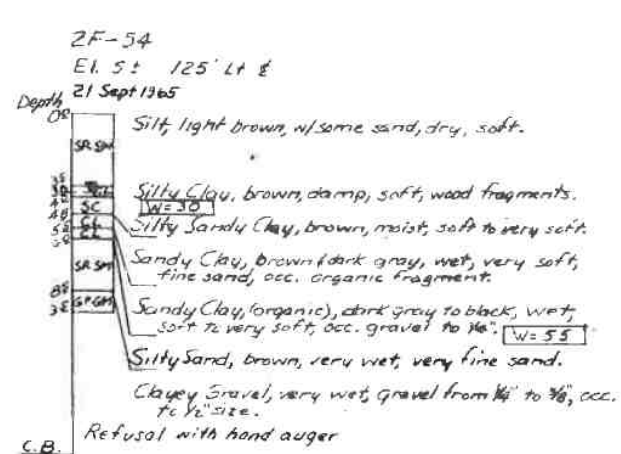 2F-54
El. 5± 125' Lt ℄
21 Sept 1965
Depth
Silt, light brown, w/some sand, dry, soft.
SP SM
Silty Clay, brown, damp, soft, wood fragments.
W=30
SC
Silty Sandy Clay, brown, moist, soft to very soft.
CL
Sandy Clay, brown & dark gray, wet, very soft,
fine sand, occ. organic fragment.
CL
SP SM
Sandy Clay, (organic), dark gray to black, wet,
soft to very soft, occ. gravel to
W=55
GP GM
Silty Sand, brown, very wet, very fine sand.
Clayey Gravel, very wet, Gravel from 1/4" to 3/8", occ.
to 1/2" size.
Refusal with hand auger
C.B.